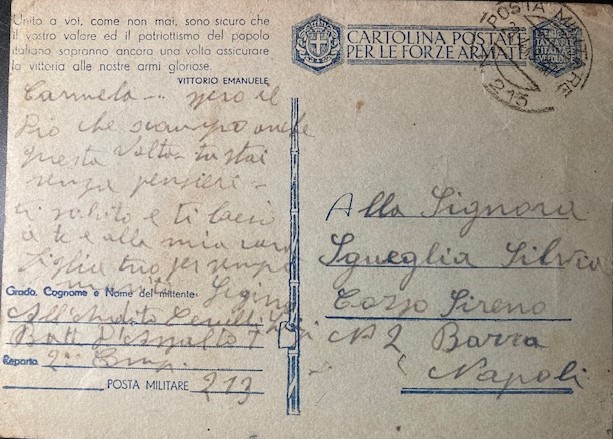 Unito a voi, come non mai, sono sicuro che
il vostro valore ed il patriottismo del popolo
italiano sapranno ancora una volta assicurare
la vittoria alle nostre armi gloriose.
VITTORIO EMANUELE
CARTOLINA POSTALE
PER LE FORZE ARMATE
POSTA MILITARE
213
Carmela
Dio che scampo anche
questa volta tu stai
senza pensieri
ti saluto e ti bacio
a te e alla mia cara
figlia tuo per sempre
Grado, Cognome e Nome del mittente
Batt. D'Assalto
Reparto 2ª Comp.
POSTA MILITARE 213
Alla Signora
Squeglia Silvia
Corso Sireno
N 2 Barra
Napoli